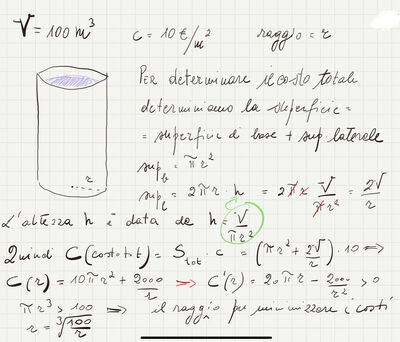 V = 100 m³ c = 10 €/m² raggio = r
Per determinare il costo totale
determiniamo la superficie =
= superficie di base + sup laterale
sup_b = πr²
r
sup_l = 2πr · h = 2πr V/πr² = 2V/r
L'altezza h è data da h = V/πr²
Quindi C(costo tot) = S_tot · c = (πr² + 2V/r) · 10 ⇒
C(r) = 10πr² + 2000/r → C'(r) = 20πr − 2000/r² > 0
πr³ > 100 ⇒ il raggio per minimizzare i costi
r = ∛(100/r)